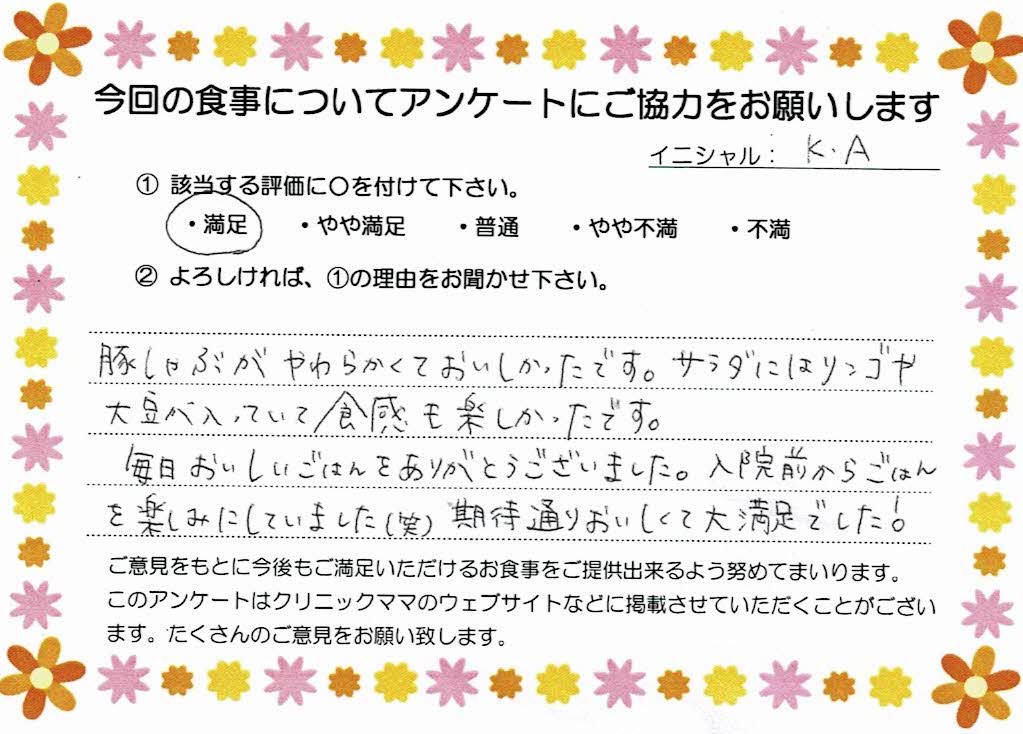 今回の食事についてアンケートにご協力をお願いします
イニシャル： K.A
① 該当する評価に〇を付けて下さい。
・満足 ・やや満足 ・普通 ・やや不満 ・不満
② よろしければ、①の理由をお聞かせ下さい。
豚しゃぶが やわらかくておいしかったです。サラダにはリンゴや
大豆が入っていて食感も楽しかったです。
毎日おいしいごはんをありがとうございました。入院前からごはん
を楽しみにしていました(笑) 期待通りおいしくて大満足でした!
ご意見をもとに今後もご満足いただけるお食事をご提供出来るよう努めてまいります。
このアンケートはクリニックママのウェブサイトなどに掲載させていただくことがござい
ます。たくさんのご意見をお願い致します。